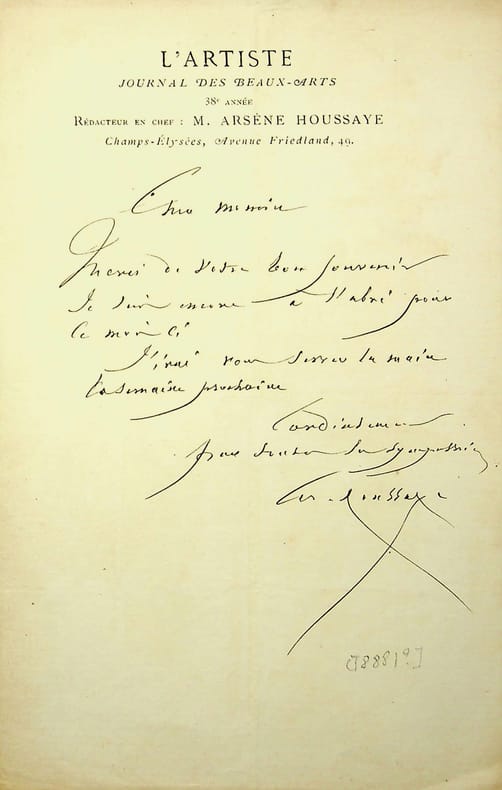 L'ARTISTE
JOURNAL DES BEAUX-ARTS
38e ANNÉE
RÉDACTEUR EN CHEF : M. ARSÈNE HOUSSAYE
Champs-Élysées, Avenue Friedland, 49.
Cher
Merci de votre bon souvenir
Je suis encore à pour
ce mois ci
J'irai vous serrer la main
la semaine prochaine
Cordialement
sympathie
Ar. Houssaye
[1881?]